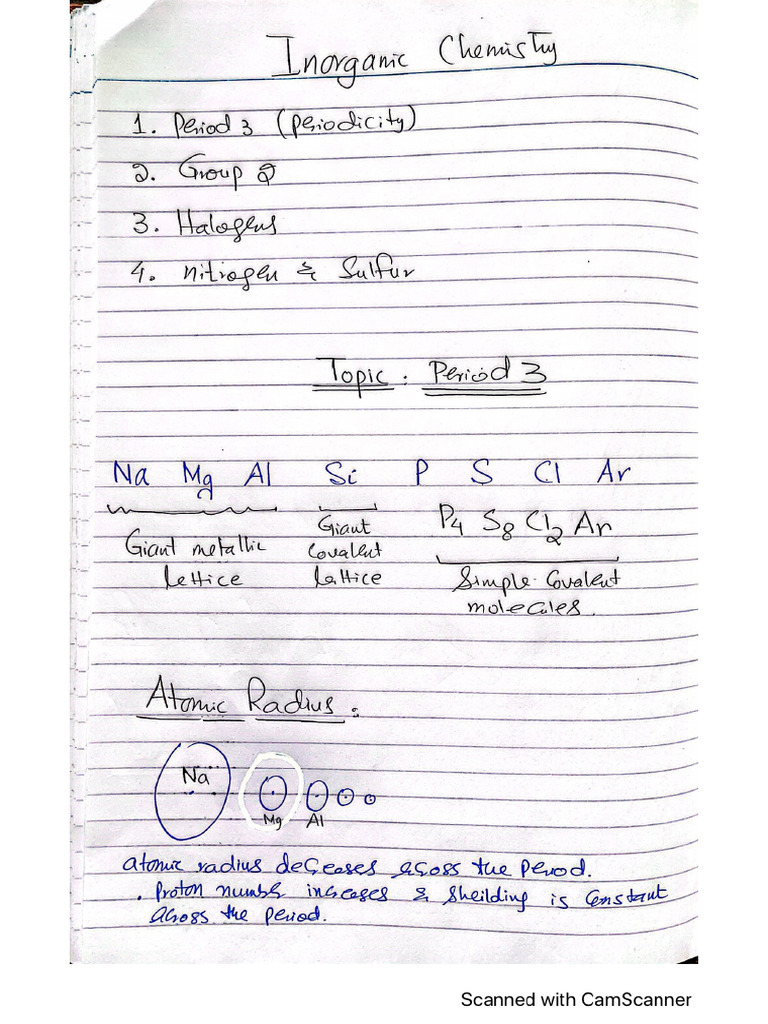 Inorganic Chemistry
1. Period 3 (periodicity)
2. Group 2
3. Halogens
4. nitrogen & Sulfur
Topic : Period 3
Na Mg Al Si P S Cl Ar
P4 S8 Cl2 Ar
Giant metallic
lettice
Giant
covalent
lattice
Simple Covalent
molecules.
Atomic Radius :
Na
Mg Al
atomic radius decreases across the period.
. Proton number increases & sheilding is constant
across the period.
Scanned with CamScanner